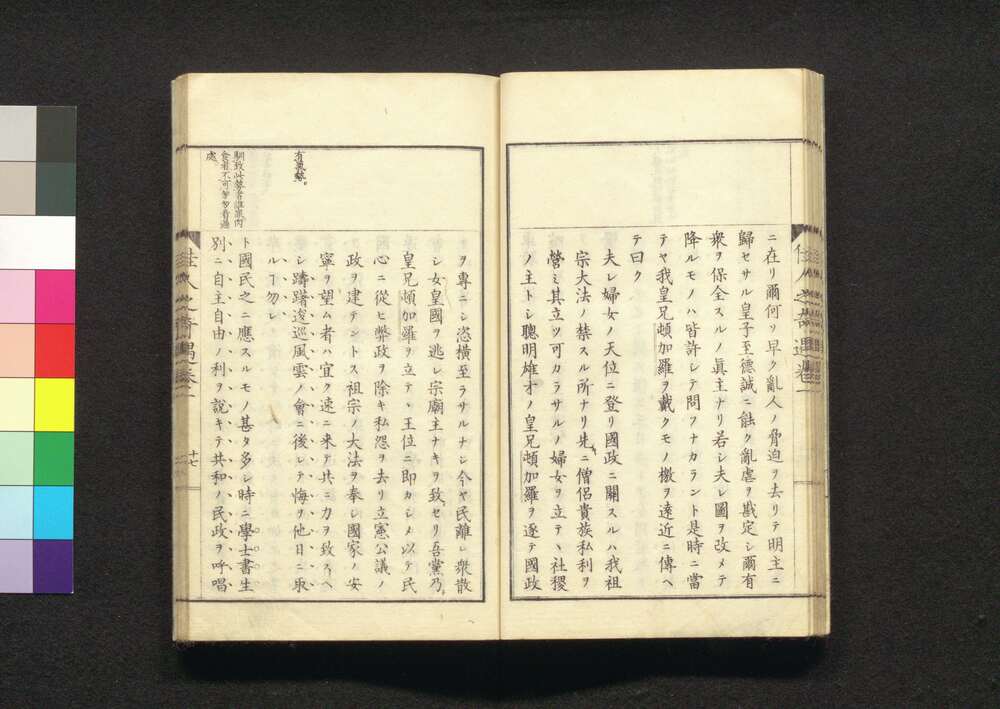 ニ在リ爾何ソ早ク亂人ノ脅迫ヲ去リテ明主ニ
歸セサル皇子至德誠ニ能ク亂虐ヲ戡定シ爾有
衆ヲ保全スルノ眞主ナリ若シ夫レ圖ヲ改メテ
降ルモノハ皆許シテ問フナカラント是時ニ當
テヤ我皇兄頓加羅ヲ戴クモノ檄ヲ遠近ニ傳ヘ
テ曰ク
夫レ婦女ノ天位ニ登リ國政ニ關スルハ我祖
宗大法ノ禁スル所ナリ先キニ僧侶貴族私利ヲ
營ミ其立ツ可カラサルノ婦女ヲ立テヽ社稷
ノ主トシ聰明雄才ノ皇兄頓加羅ヲ逐テ國政
ヲ專ニシ恣橫至ラサルナシ今ヤ民離レ衆散
シ女皇國ヲ逃レ宗廟主ナキヲ致セリ吾黨乃
皇兄頓加羅ヲ立テヽ王位ニ即カシメ以テ民
心ニ從ヒ弊政ヲ除キ私怨ヲ去リ立憲公議ノ
政ヲ建テントス祖宗ノ大法ヲ奉シ國家ノ安
寧ヲ望ム者ハ宜ク速ニ來テ共ニ力ヲ致スヘ
シ躊躇逡巡風雲ノ會ニ後レテ悔ヲ他日ニ取
ルヿ勿レ
ト國民之ニ應スルモノ甚タ多シ時ニ學士書生
別ニ自主自由ノ利ヲ說キテ共和ノ民政ヲ呼唱
有氣勢。
馴致此勢者誰歟肉
食者不可等閑看過
處。
佳人之奇遇卷二
十七